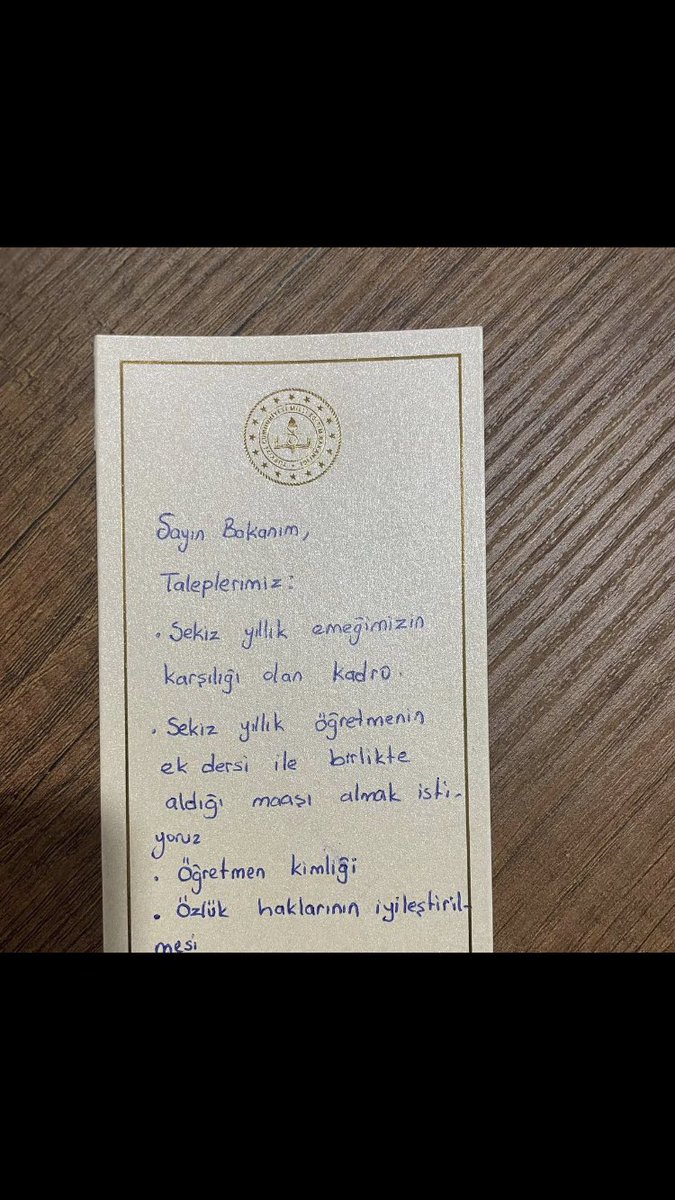 TÜRKİYE CUMHURİYETİ MİLLÎ EĞİTİM BAKANLIĞI
Sayın Bakanım,
Taleplerimiz:
• Sekiz yıllık emeğimizin
karşılığı olan kadro.
• Sekiz yıllık öğretmenin
ek dersi ile birlikte
aldığı maaşı almak isti-
yoruz
• Öğretmen kimliği
• Özlük haklarının iyileştiril-
mesi